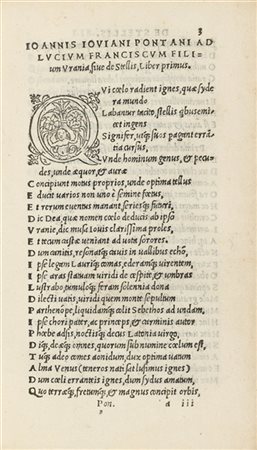 3
IOANNIS IOVIANI PONTANI AD
LVCIVM FRANCISCVM FILI=
um Vrania siue de Stellis, Liber primus.
Qui cœlo radient ignes, quæ syde
ra mundo
Labantur tacito stellis quibus emi=
cet ingens
Signifer, utque suos pagint errātia
cursus,
Vnde hominum genus, et pecu=
des, unde æquor, et auræ
Concipiunt motus proprios, unde optima tellus
Educit uarios non uno è semine fœtus,
Et rerum euentus manant, seriesque futuri,
Dic Dea, quæ nomen cœlo deducis ab ipso
Vranie, dic musa Iouis clarissima proles,
Et tecum castæ ueniant ad uota sorores.
Dum canitis, resonatque cauis in uallibus echo,
Ipse legens Laurique comas, ederamque uirentem,
Ipse aras statuam uiridi de cespite, et umbras
Lustrabo, tumulisque feram solennia dona
Dilecti uatis, uiridi quem monte sepultum
Parthenope, liquidamque colit Sebethos ad undam,
Ipse chori pater, ac princeps, et carminis autor
Phœbe adsis, noctisque decus Latonia uirgo,
Dique, deæque omnes, quorum sub numine cœlum est,
Tuque adeo comes aonidum, dux optima uatum
Alma Venus (teneros nati sat lusimus ignes)
Dum cœli errantis ignes, dum sydus amatum,
Quo terræque, fretumque, et magnus concipit orbis,
Pon. a iii